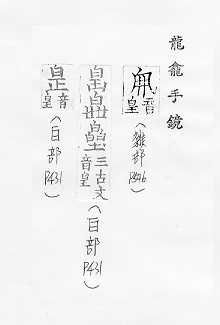 龍龕手鏡
音皇（雜部P546）
三古文音皇（白部P431）
音皇（白部P431）